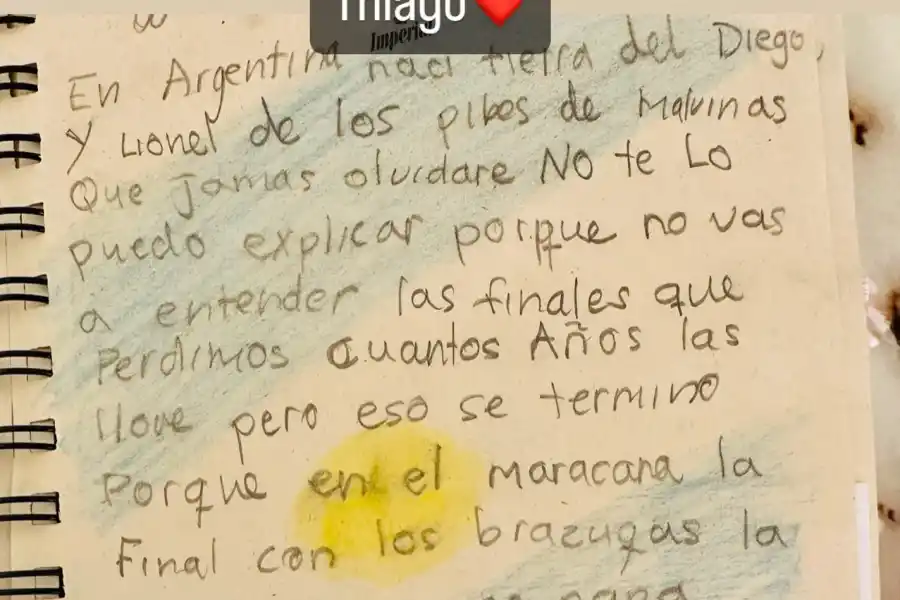 Thiago ❤
Imperial
En Argentina naci tierra del Diego,
y Lionel de los pibes de Malvinas
Que jamas olvidare NO te Lo
puedo explicar porque no vas
a entender las finales que
Perdimos cuantos Años las
llore pero eso se termino
Porque en el maracana la
Final con los brazugas la
papa